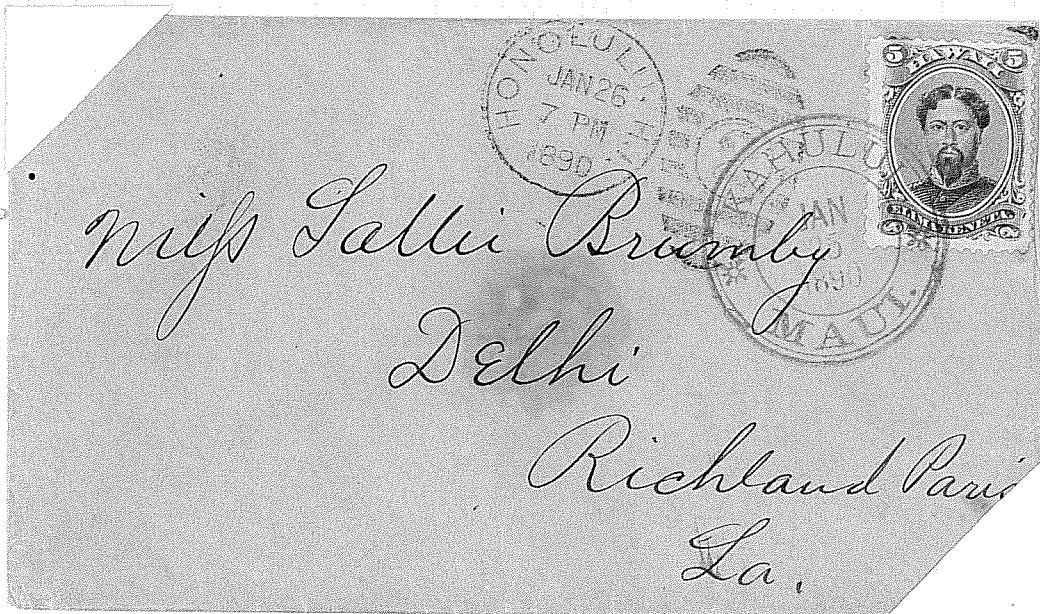 HONOLULU H.I.
JAN 26
7 PM
1890
KAHULUI
JAN
1890
MAUI.
5 HAWAII 5
KAMEHAMEHA V
Miss Sallie Brumby
Delhi
Richland Paris
La.